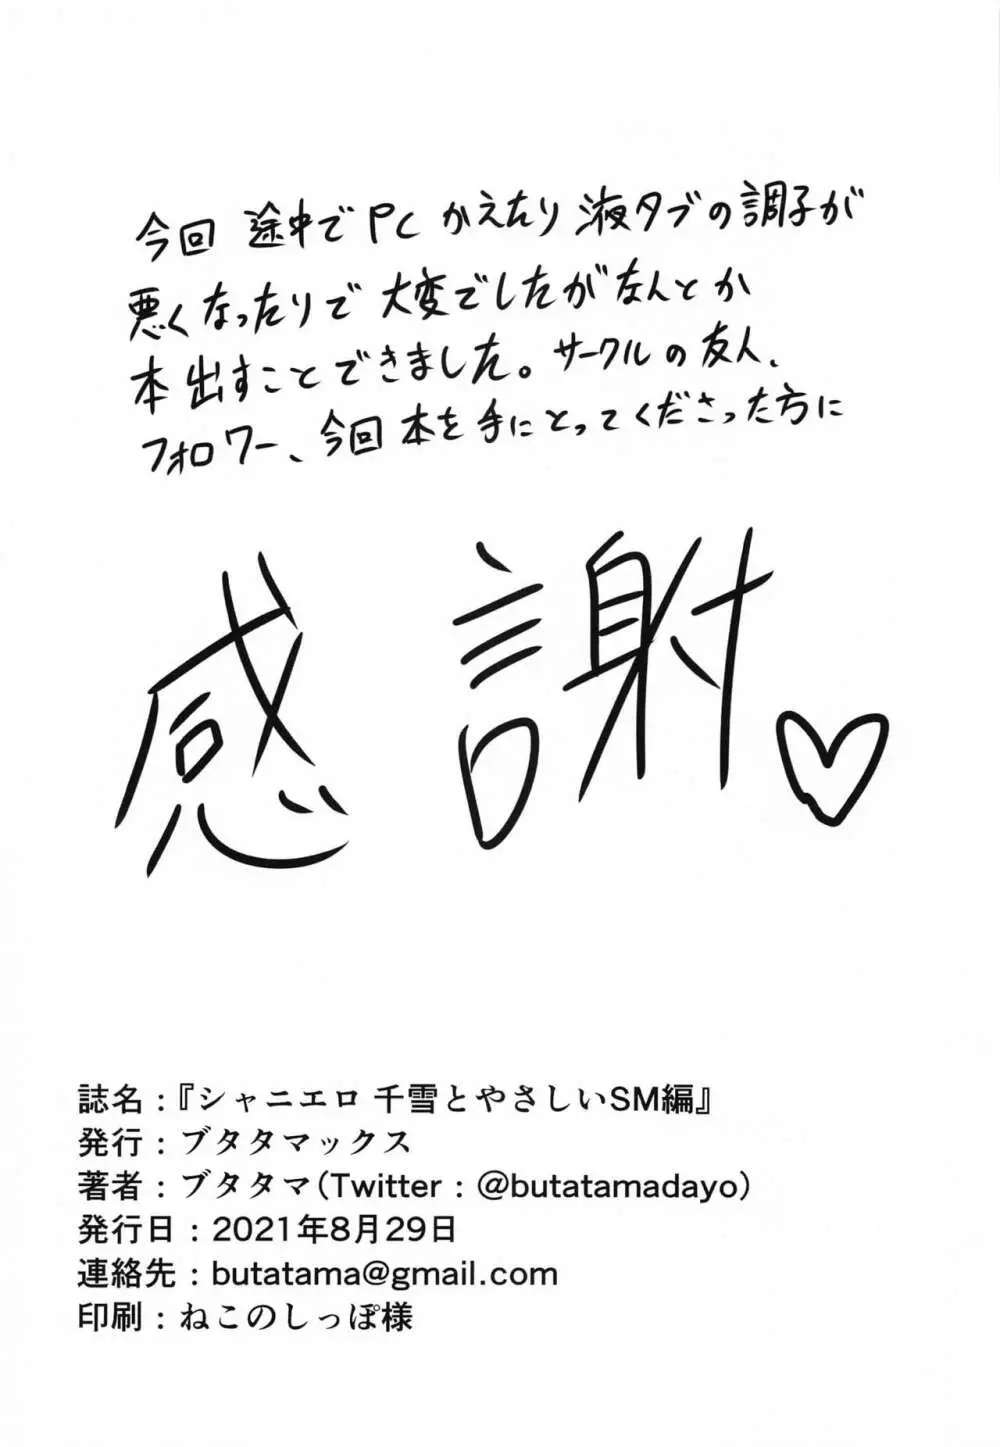 今回 途中で PC かえたり 液タブの調子が
悪くなったりで 大変でしたがなんとか
本出すことできました。サークルの友人、
フォロワー、今回 本を手にとってくださった方に
感謝♡
誌名：『シャニエロ 千雪とやさしいSM編』
発行：ブタタマックス
著者：ブタタマ(Twitter：@butatamadayo)
発行日：2021年8月29日
連絡先：butatama@gmail.com
印刷：ねこのしっぽ様